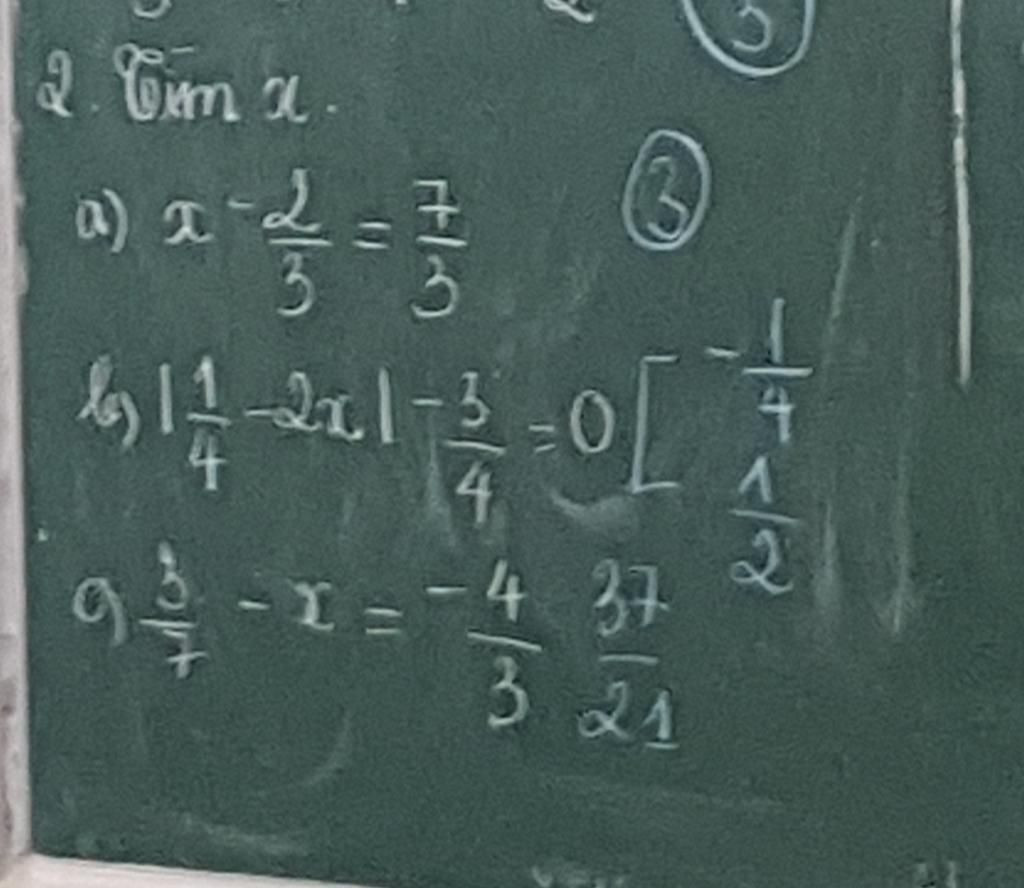 2. Tìm x.
a) x - 2/3 = 7/3 3
b) |1/4 - 2x| - 3/4 = 0 [ -1/4
1/2
c) 3/7 - x = -4/3 37/21